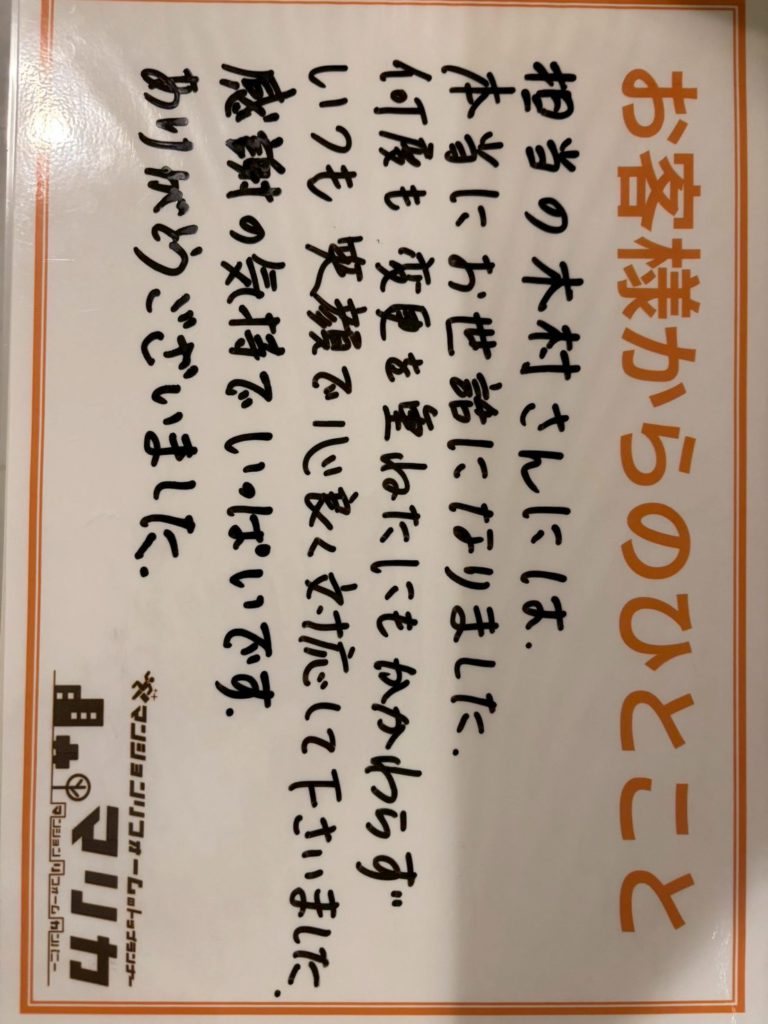 お客様からのひとこと
担当の木村さんには.
本当にお世話になりました.
何度も変更を重ねたにもかかわらず
いつも笑顔で心良く対応して下さいました.
感謝の気持でいっぱいです.
ありがとうございました.
マンションリフォームのトップランナー
マリカ
マンションリフォームカンパニー